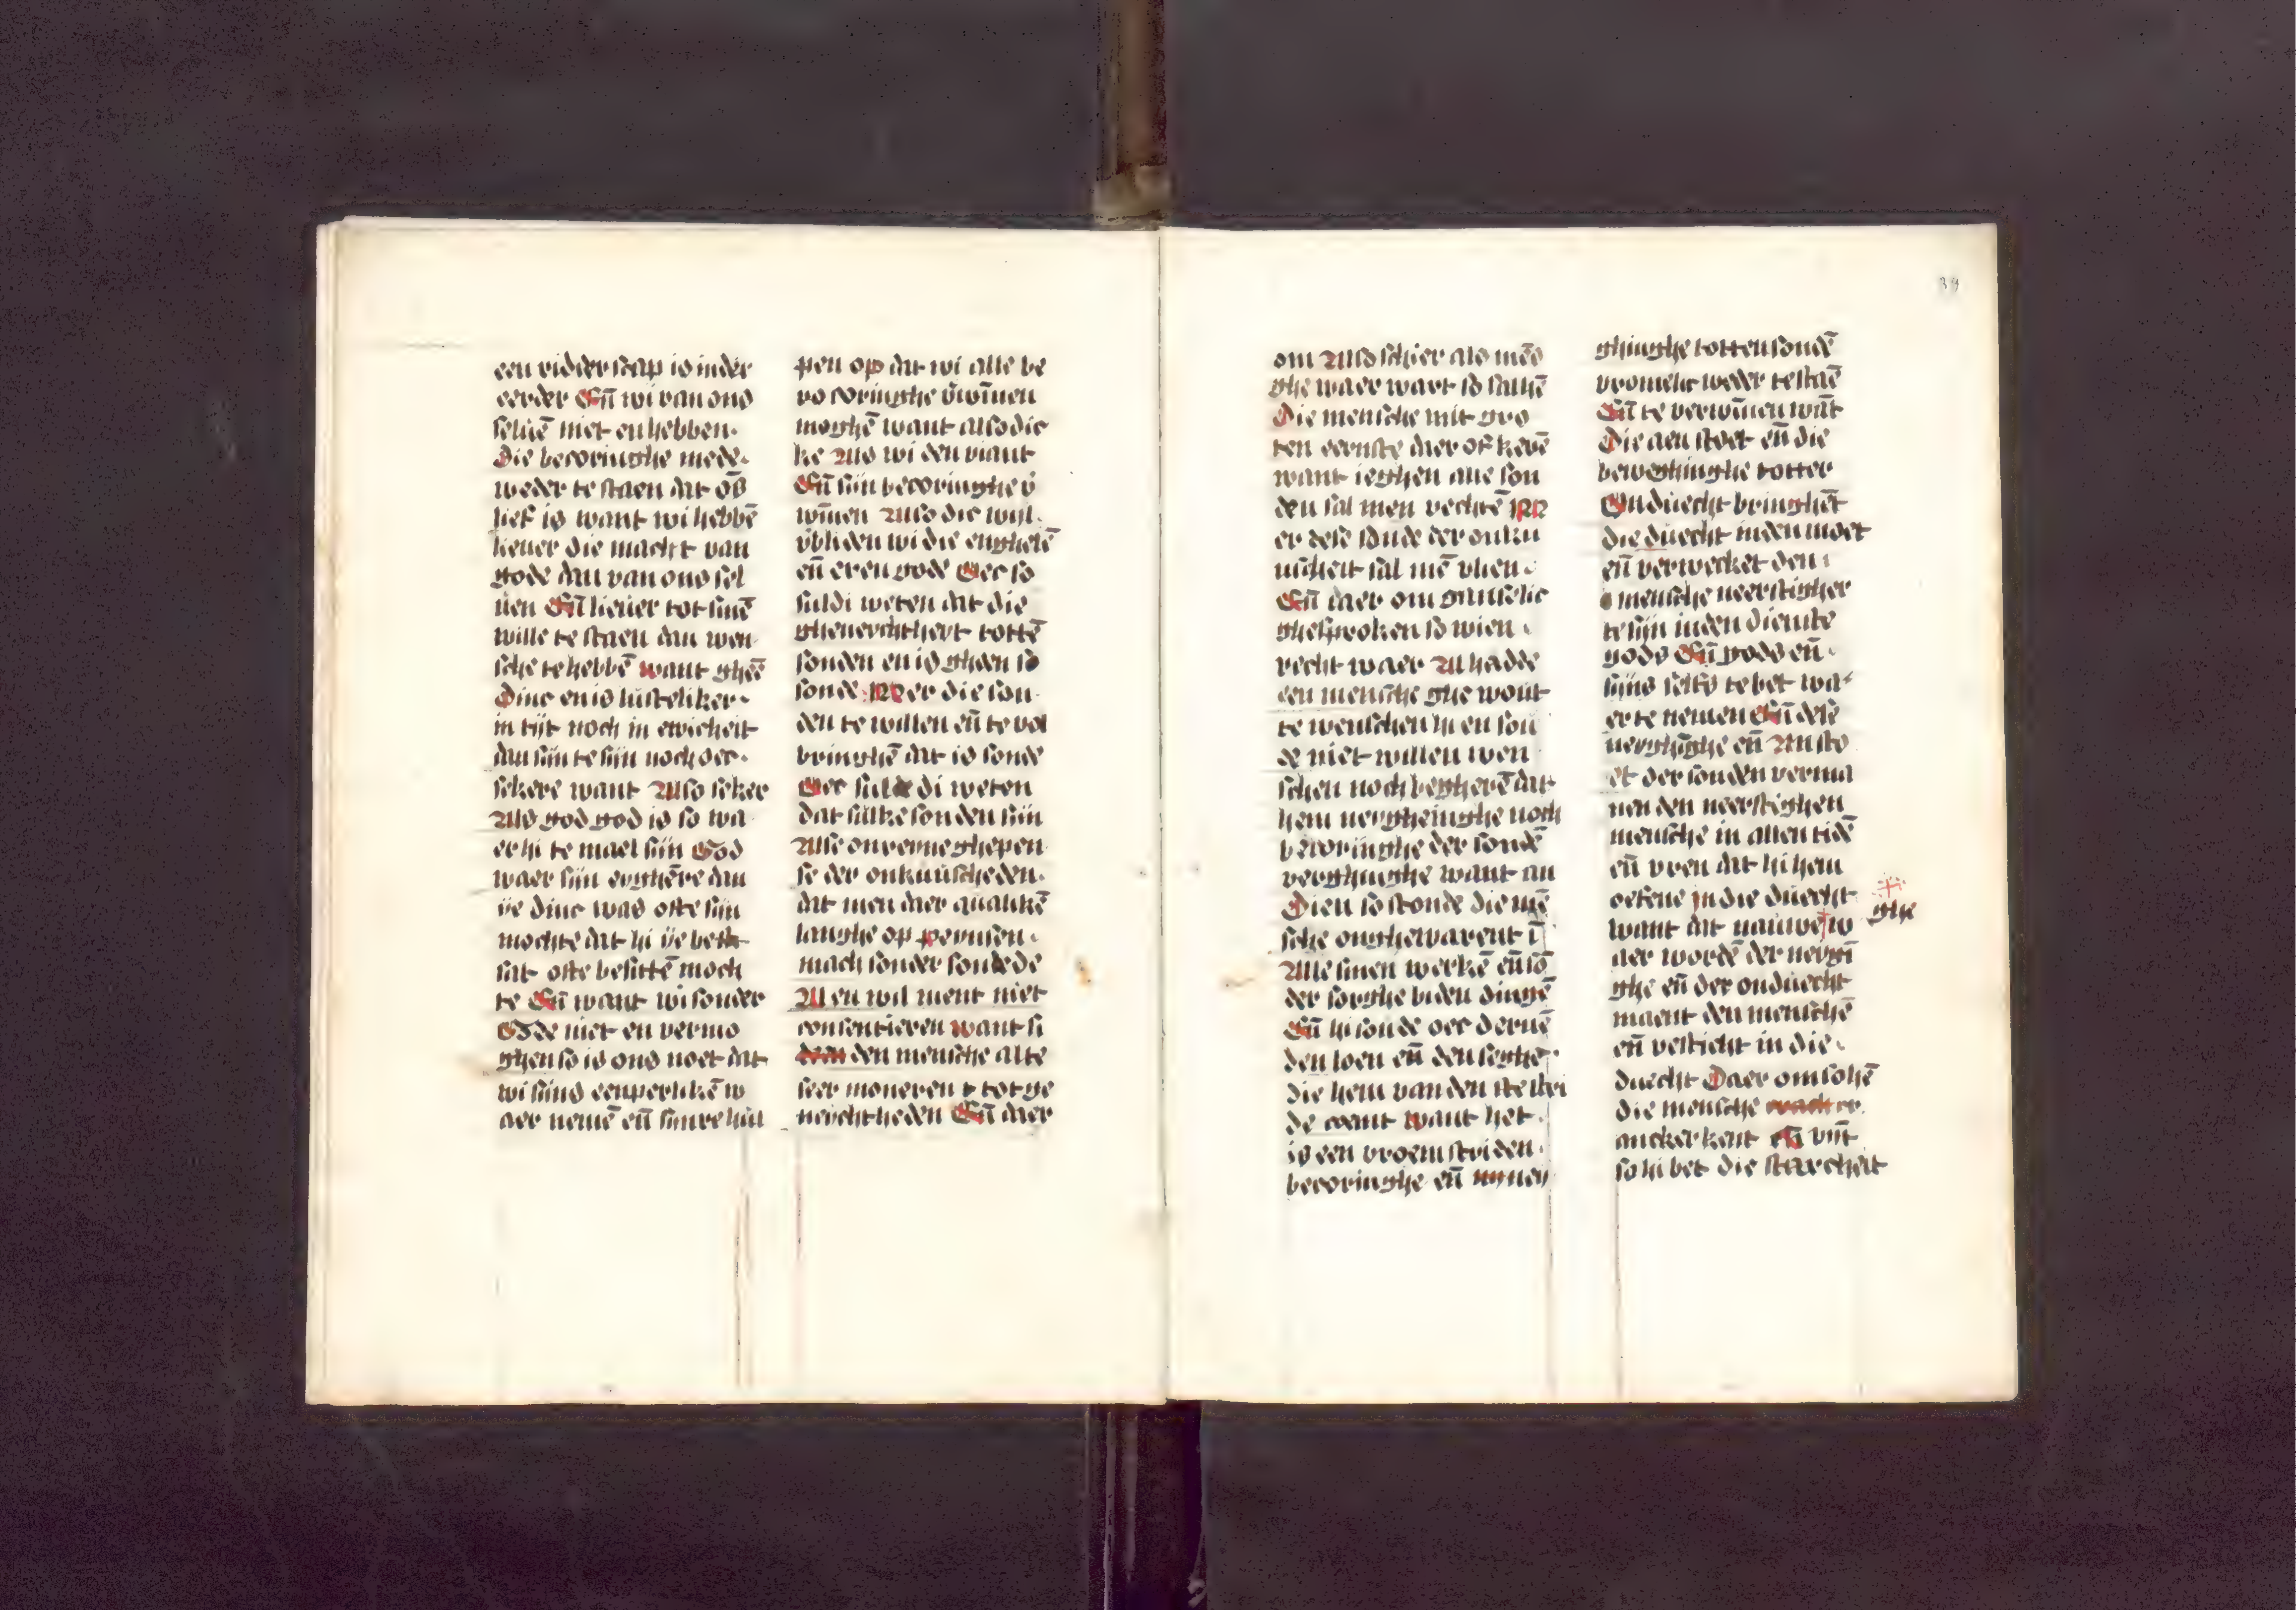 een ridderscap is inder
eerder En̄ wi van ons
seluē niet en hebben.
Die becoringhe mede.
weder te staen dat ōs
lief is want wi hebbē
lieuer die macht van
gode dan van ons sel
uen En̄ lieuer tot sinē
wille te staen dan wen
sche te hebbē want gheē
Dinc en is lusteliker.
in tijt noch in ewicheit
dan sijn te sijn noch oec.
sekere want Also seker
Als god god is so wa
er hi te mael sijn God
waer sijn eyghēre dan
ije dinc was ofte sijn
mochte dat hi ije beth
sat ofte besittē moch
te En̄ want wi sonder
Gode niet en vermo
ghen so is ons noet dat
wi sijns eenperlikē w
aer nemē en̄ sijnre hul
pen op dat wi alle be
co coringhe v̄wīnen
moghē want also die
ke Als wi den viant
En̄ sijn becoringhe v̄
wīnen Also dic wijl.
v̄bliden wi die enghelē
en̄ eren gode Oec so
suldi weten dat die
gheneychthert tottē
sonden en is gheen so
sonde. Mer die son
den te willen en̄ te vol
bringhē dat is sonde
Oec sul di weten
dat sulke sonden sijn
Alse onreyne ghepen
se der onkuuscheden.
dat men daer qualikē
langhe op peynsen.
mach sonder sonde de
Al en wil ment niet
consentieren want si
den mensche alte
seer moueren tot ge
neychtheden En̄ daer
om Also schier als mēs
ghe waer wart so salhē
Die mensche mit gro
ten eernste daer of kerē
want ieghen alle son
den sal men vechtē M
er dese sonde der onku
uscheit sal mē vlien.
En̄ daer om ganselic
ghesproken so wien.
recht waer Al hadde
een mensche ghe wout
te wenschen hi en sou
de niet willen wen
schen noch begherē dat
hem neygheinghe noch
becoringhe der sondē
verghinghe want an
Dien so stonde die mē
sche onghewarent ī
Alle sinen werkē en̄ sō
der sorghe biden dingē
En̄ hi sonde oec deruē
den loen en̄ den seghe.
die hem van den stri
de coemt want het.
is een vroem striden.
becoringhe en̄ ney
ghinghe totten sondē
vromelic weder te staē
En̄ te verwīnen wāt
Die aen stoet en̄ die
beweghinghe totter
Onduecht bringhēt
die duecht inden moet
en̄ verwecket den.
mensche neerstigher
te sijn inden dienste
gods En̄ gods en̄.
sijns selfs te bet wa
er te nemen En̄ dese
neyghīghe en̄ Ansto
et der sonden verma
nen den neerstighen
mensche in allen tidē
en̄ vren dat hi hem
oefene in die duecht
want dat nauwe w
ghe
aer wordē der neygī
ghe en̄ der onduecht
maent den menschē
en̄ vesticht in die.
duecht Daer om so hē
die mensche
anckerkent en̄ vīnt
so hi bet die starcheit
39